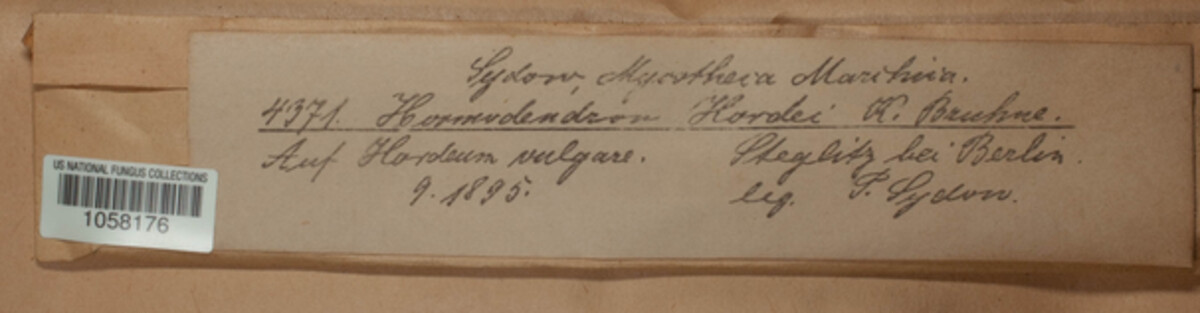 Sydow, Mycotheca Marchica.
4371. Hormodendron Hordei K. Bruhne.
Auf Hordeum vulgare. Steglitz bei Berlin.
9. 1895. leg. P. Sydow.
US NATIONAL FUNGUS COLLECTIONS
1058176